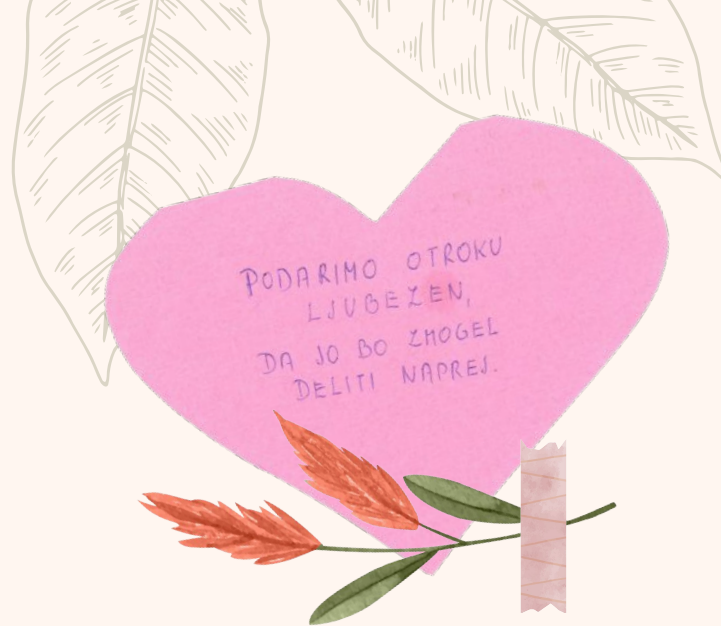 PODARIMO OTROKU
LJUBEZEN,
DA JO BO ZMOGEL
DELITI NAPREJ.